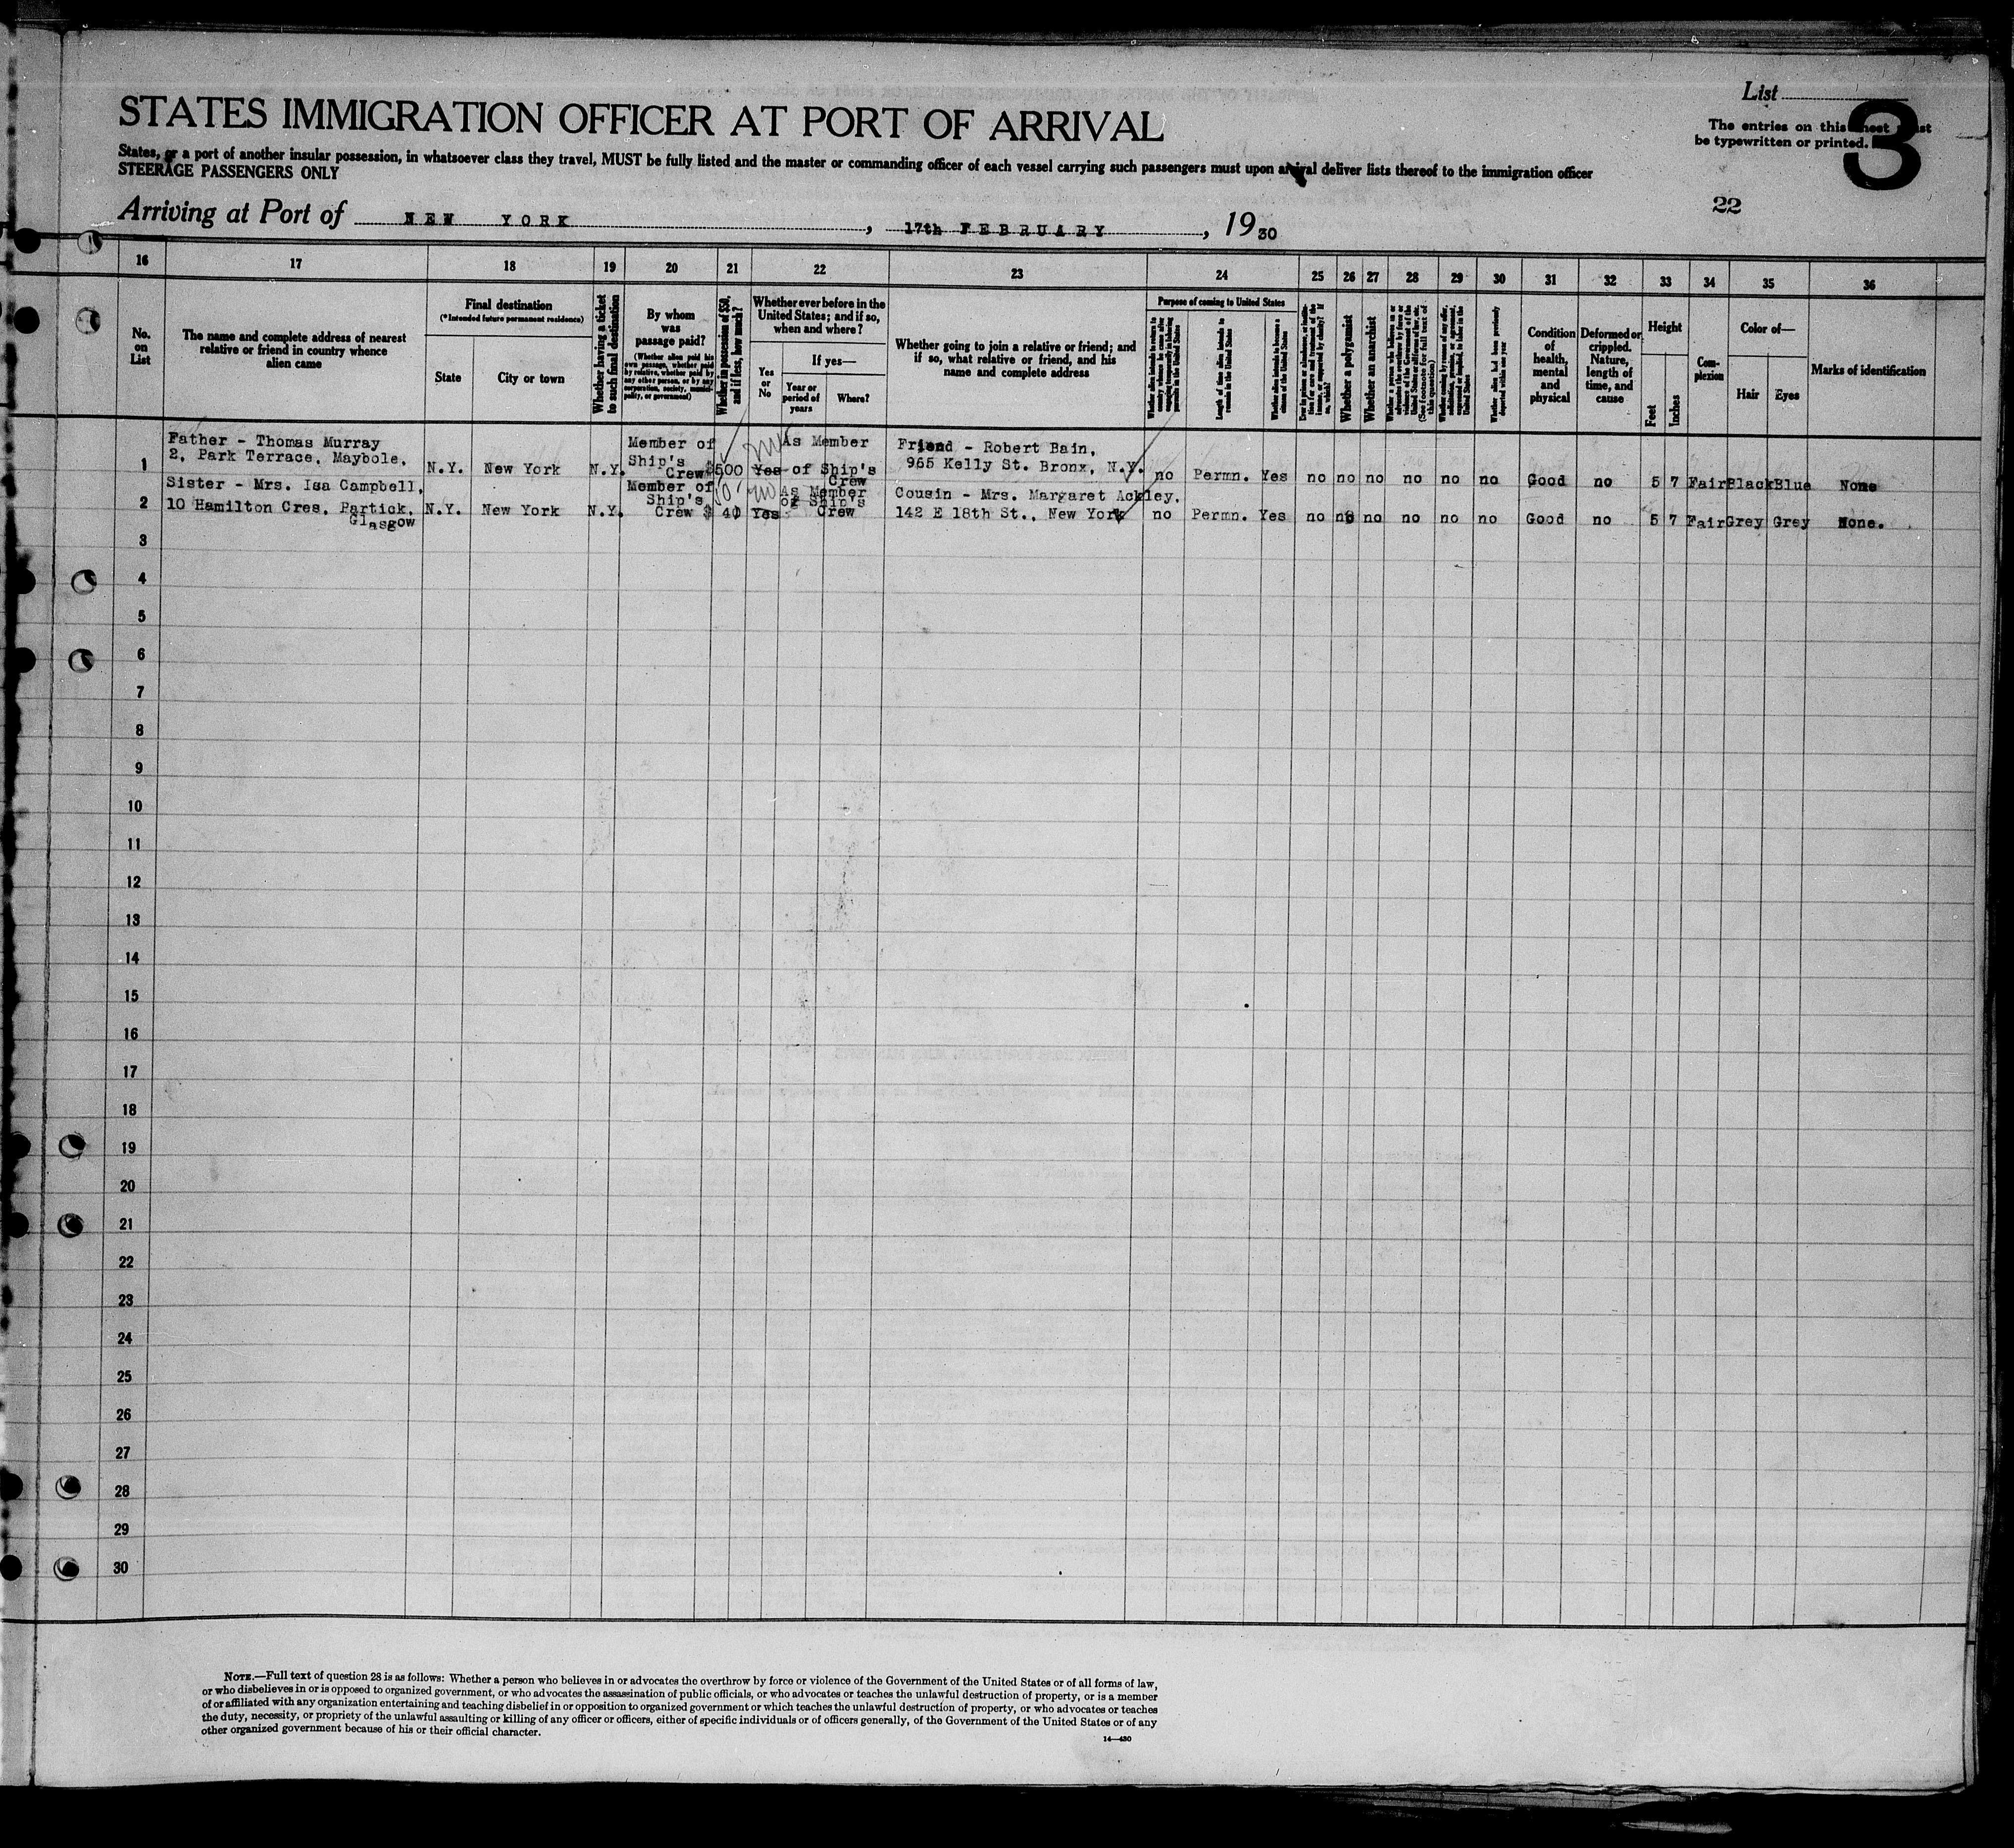 STATES IMMIGRATION OFFICER AT PORT OF ARRIVAL
List
3
The entries on this sheet must
be typewritten or printed.
States, or a port of another insular possession, in whatsoever class they travel, MUST be fully listed and the master or commanding officer of each vessel carrying such passengers must upon arrival deliver lists thereof to the immigration officer
STEERAGE PASSENGERS ONLY
22
Arriving at Port of NEW YORK , 17th FEBRUARY , 19 30
16 17 18 19 20 21 22 23 24 25 26 27 28 29 30 31 32 33 34 35 36
No.
on
List
The name and complete address of nearest
relative or friend in country whence
alien came
Final destination
(*Intended future permanent residence)
State
City or town
Whether having a ticket
to such final destination
By whom
was
passage paid?
(Whether alien paid his
own passage, whether paid
by relative, whether paid by
any other person, or by any
corporation, society, munici-
pality, or government)
Whether in possession of $50,
and if less, how much?
Whether ever before in the
United States; and if so,
when and where?
Yes
or
No
If yes—
Year or
period of
years
Where?
Whether going to join a relative or friend; and
if so, what relative or friend, and his
name and complete address
Purpose of coming to United States
Length of time alien intends to
remain in the United States
Whether alien intends to become a
citizen of the United States
Whether a polygamist
Whether an anarchist
(See footnote for full text of
this question)
Whether alien had been previously
deported within one year
Condition
of
health,
mental
and
physical
Deformed or
crippled.
Nature,
length of
time, and
cause
Height
Feet
Inches
Com-
plexion
Color of—
Hair
Eyes
Marks of identification
1
Father - Thomas Murray
2, Park Terrace, Maybole,
N.Y. New York N.Y.
Member of
Ship's
Crew
$500 Yes
As Member
of Ship's
Crew
Friend - Robert Bain,
965 Kelly St. Bronx, N.Y.
no Permn. Yes no no no no no no Good no 5 7 Fair Black Blue None
2
Sister - Mrs. Isa Campbell,
10 Hamilton Cres, Partick,
Glasgow
N.Y. New York N.Y.
Member of
Ship's
Crew
$ 40 Yes
As Member
of Ship's
Crew
Cousin - Mrs. Margaret Ackley,
142 E 18th St., New York
no Permn. Yes no no no no no no Good no 5 7 Fair Grey Grey None.
3
4
5
6
7
8
9
10
11
12
13
14
15
16
17
18
19
20
21
22
23
24
25
26
27
28
29
30
NOTE.—Full text of question 28 is as follows: Whether a person who believes in or advocates the overthrow by force or violence of the Government of the United States or of all forms of law,
or who disbelieves in or is opposed to organized government, or who advocates the assassination of public officials, or who advocates or teaches the unlawful destruction of property, or is a member
of or affiliated with any organization entertaining and teaching disbelief in or opposition to organized government or which teaches the unlawful destruction of property, or who advocates or teaches
the duty, necessity, or propriety of the unlawful assaulting or killing of any officer or officers, either of specific individuals or of officers generally, of the Government of the United States or of any
other organized government because of his or their official character.
14—430